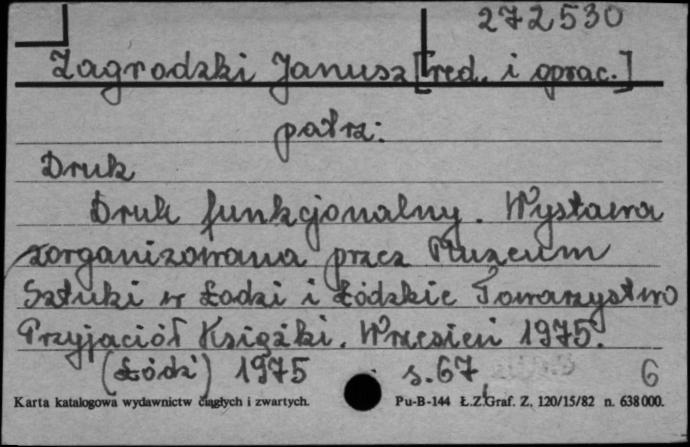 272530
Zagrodzki Janusz [red. i oprac.]
patrz:
Druk
Druk funkcjonalny. Wystawa
zorganizowana przez Muzeum
Sztuki w Łodzi i Łódzkie Towarzystwo
Przyjaciół Książki. Wrzesień 1975.
(Łódź) 1975 s. 67, 6
Karta katalogowa wydawnictw ciągłych i zwartych. Pu-B-144 Ł.Z.Graf. Z. 120/15/82 n. 638000.